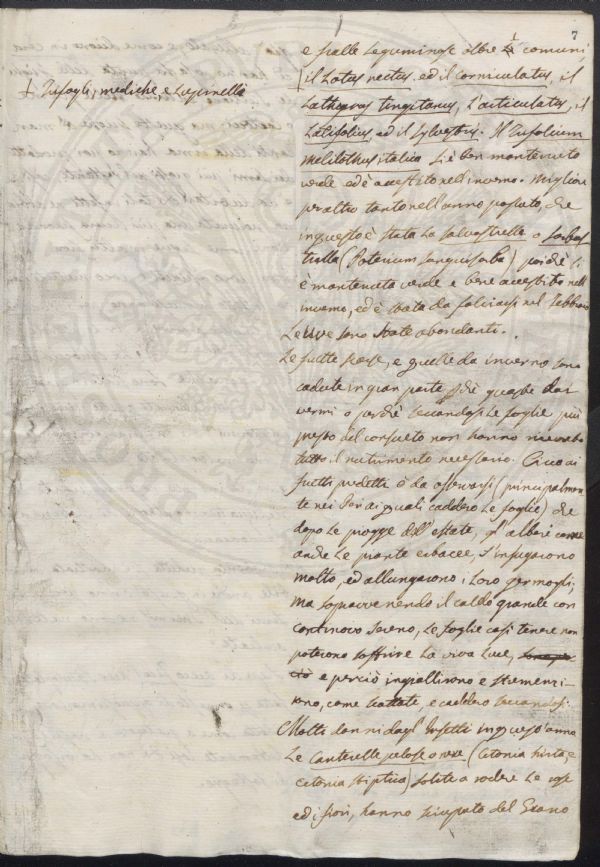 7
e spalle leguminose oltre le comuni,
† Trifogli, mediche, e Lupinella
il Lotus rectus ed il corniculatus, il
Lathyros tingitanus, l'articulatus, il
Latifolius, ed il sylvestris. Il Trifolium
Melilothus italica si è ben mantenuto
verde ed è accestito nell'inverno. Migliore
per altro tanto nell'anno passato, che
in questo è stata la salvastrella o sorbas
trella (Poterium sanguisorba) poichè si
è mantenuta verde e bene accestita nell'
inverno, ed è stata da falciarsi nel febbraio
Le uve sono state abondanti.
Le frutte scarse, e quelle da inverno sono
cadute in gran parte o chè guaste dai
vermi o perchè seccandosi le foglie più
presto del consueto non hanno ricevuto
tutto il nutrimento necessario. Circa ai
frutti predetti è da osservarsi (principalmen
te nei Peri ai quali caddero le foglie) che
dopo le piogge dell'estate, gl'alberi come
anche le piante erbacee, s'insugarono
molto, ed allungarono i loro germogli;
ma sopravvenendo il caldo grande con
continovo sereno, le foglie così tenere non
poterono soffrire la viva luce,
e perciò ingiallirono e
rono, come, e caddero seccandosi.
Molti danni dagl'Insetti in quest'anno
Le Canterelle pelose o nere (Cetonia hirta, e
cetonia stiptica) solite a rodere le rose
ed i fiori, hanno sciupato del Grano